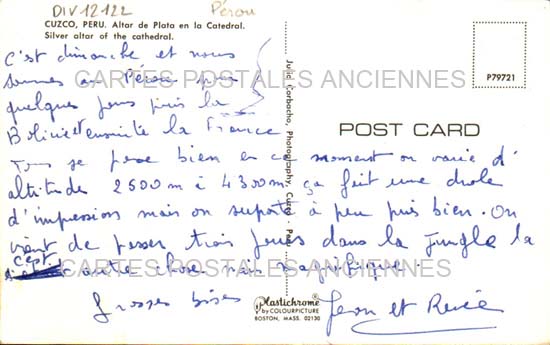 DIV12122
Pérou
CUZCO, PERU. Altar de Plata en la Catedral.
Silver altar of the cathedral.
C'est dimanche et nous
sommes au Pérou pour
quelques jours puis la
Bolivie et ensuite la France
CARTES POSTALES ANCIENNES
P79721
POST CARD
Julio Corbacho, Photography, Cuzco - Peru
se passe bien en ce moment on varie d'
altitude 2500m à 4300m ça fait une drole
d'impression mais on suporte à peu près bien. On
vient de passer trois jours dans la jungle la
c'est autre chose mais magnifique.
CARTES POSTALES ANCIENNES
Grosses bises
Jean et Renée
Plastichrome®
by COLOURPICTURE
BOSTON, MASS. 02130